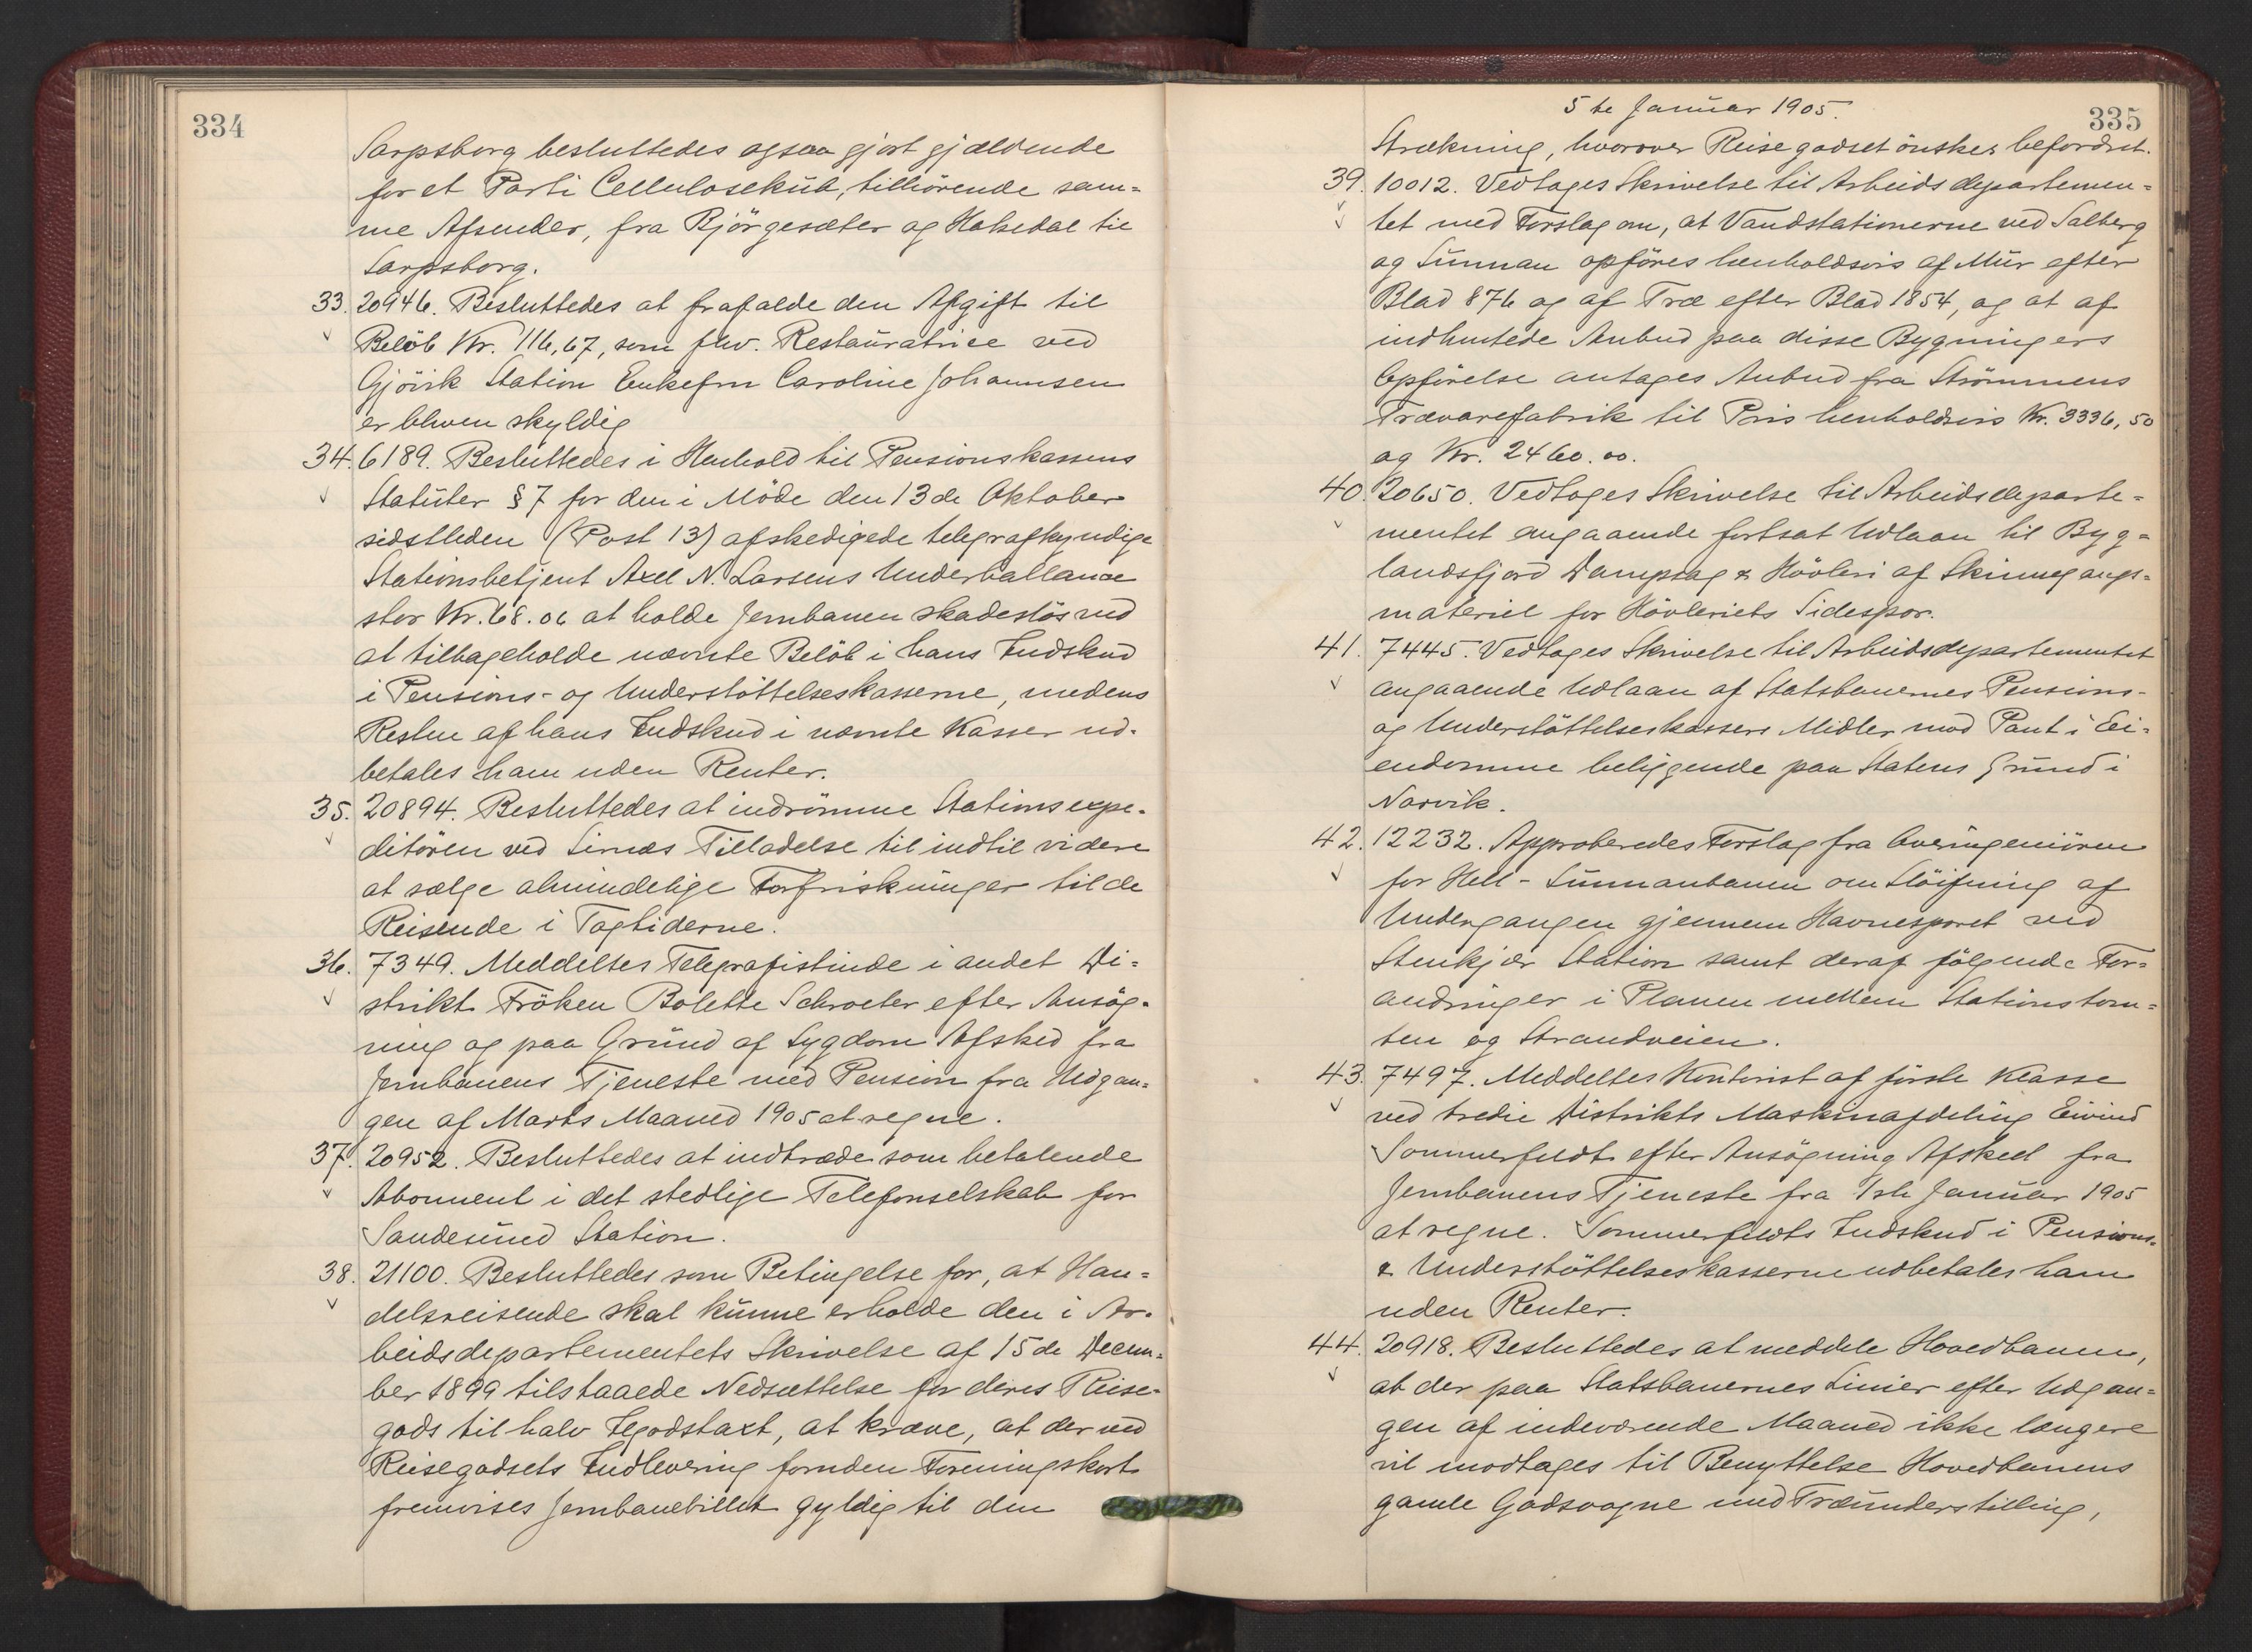 334
Sarpsborg besluttedes ogsaa gjort gjældende
for et Parti Cellulosekub, tilhörende sam=
me Afsender, fra Bjørgesæter og Hakedal til
Sarpsborg.
33. 20946. Besluttedes at frafalde den Afgift til
Belöb Kr. 116,67, som fhv. Restauratrice ved
Gjövik Station Enkefru Caroline Johannsen
er bleven skyldig
34. 6189. Besluttedes i Henhold til Pensionskassens
Statuter § 7 for den i Möde den 13de Oktober
sidstleden (Post 13) afskedigede telegrafkyndige
Stationsbetjent Axel N. Larsens Underballance
stor Kr. 68.06 at holde Jernbanen skadeslös ved
at tilbageholde nævnte Belöb i hans Indskud
i Pensions- og Understöttelseskasserne, medens
Resten af hans Indskud i nævnte Kasser ud-
betales ham uden Renter.
35. 20894. Besluttedes at indrömme Stationsexpe-
ditören ved Lirnæs Tilladelse til indtil videre
at sælge almindelige Forfriskninger til de
Reisende i Togtiderne.
36. 7349. Meddeltes Telegrafistinde i andet Di=
strikt Fröken Bolette Schroeter efter Ansög-
ning og paa Grund af Sygdom Afsked fra
Jernbanens Tjeneste med Pension fra Udgan=
gen af Marts Maaned 1905 at regne.
37. 20952. Besluttedes at indtræde som betalende
Abonnent i det stedlige Telefonselskab for
Sandesund Station.
38. 21100. Besluttedes som Betingelse for, at Han=
delsreisende skal kunne erholde den i Ar-
beidsdepartementets Skrivelse af 15de Decem=
ber 1899 tilstaaede Nedsættelse for deres Reise-
gods til halv Ilgodstaxt, at kræve, at der ved
Reisegodsets Indlevering foruden Foreningskort
fremvises Jernbanebillet gyldig til den
5te Januar 1905.
335
Strækning, hvorover Reisegodset önskes befordret.
39. 10012. Vedtoges Skrivelse til Arbeidsdepartemen=
tet med Forslag om, at Vandstationerne ved Salberg
og Sunnan opföres henholdsvis af Mur efter
Blad 876 og af Træ efter Blad 1854, og at af
indhentede Anbud paa disse Bygningers
Opförelse antages Anbud fra Strömmens
Trævarefabrik til Pris henholdsvis Kr. 3336,50
og Kr. 2460.00.
40. 20650. Vedtoges Skrivelse til Arbeidsdeparte=
mentet angaaende fortsat Udlaan til Byg=
landsfjord Dampsag & Hövleri af Skinnegangs=
materiel for Hövleriets Sidespor.
41. 7445. Vedtoges Skrivelse til Arbeidsdepartementet
angaaende Udlaan af Statsbanernes Pensions-
og Understöttelseskassers Midler mod Pant i Ei=
endomme beliggende paa Statens Grund i
Narvik.
42. 12232. Approberedes Forslag fra Overingeniören
for Hell-Sunnanbanen om Slöifning af
Undergangen gjennem Havnesporet ved
Stenkjær Station samt deraf fölgende For=
andringer i Planen mellem Stationstom=
ten og Strandveien.
43. 7497. Meddeltes Kontorist af förste Klasse
ved tredie Distrikts Maskinafdeling Eivind
Sommerfeldt efter Ansögning Afsked fra
Jernbanens Tjeneste fra 1ste Januar 1905
at regne. Sommerfeldts Indskud i Pensions-
& Understöttelseskasserne udbetales ham
uden Renter.
44. 20918. Besluttedes at meddele Hovedbanen,
at der paa Statsbanernes Linier efter Udgan=
gen af indeværende Maaned ikke længere
vil modtages til Benyttelse Hovedbanens
gamle Godsvogne med Træunderstilling,